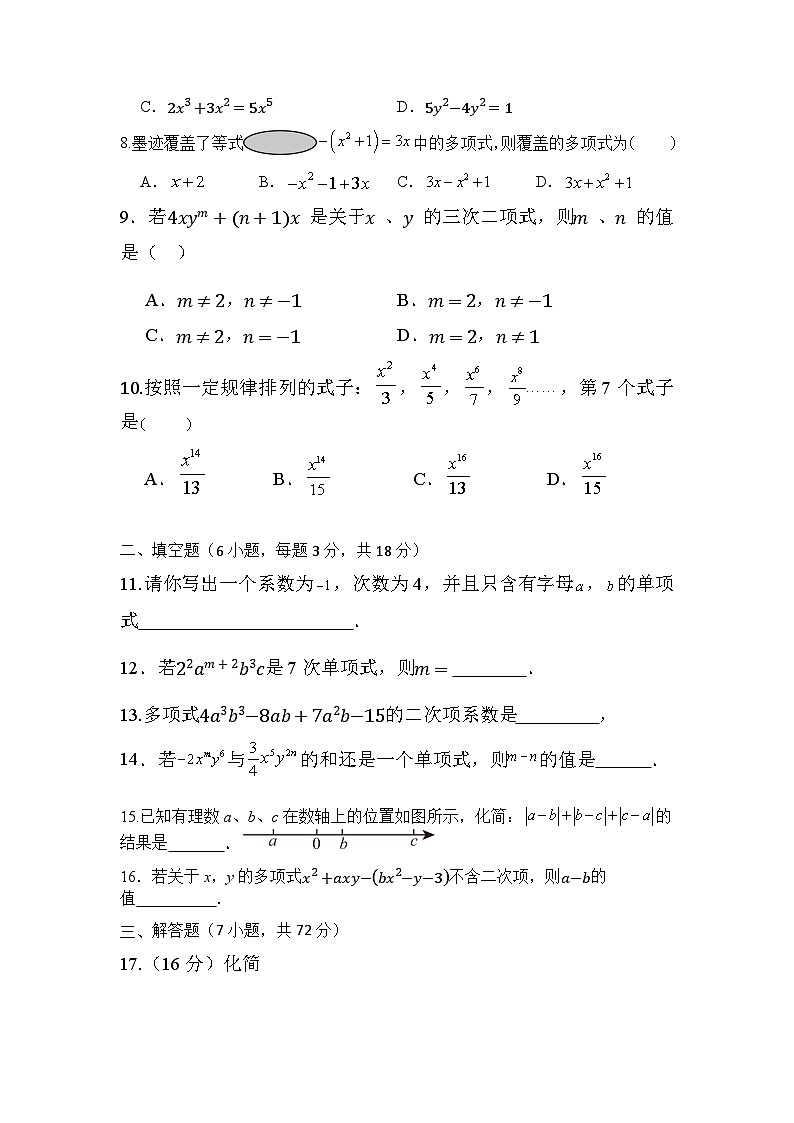 C. 2x³+3x²=5x⁵ D. 5y²−4y²=1
8.墨迹覆盖了等式 −(x²+1)=3x 中的多项式,则覆盖的多项式为( )
A. x+2 B. −x²−1+3x C. 3x−x²+1 D. 3x+x²+1
9. 若4xyᵐ+(n+1)x 是关于x 、y 的三次二项式，则m 、n 的值
是（ ）
A. m≠2，n≠−1 B. m=2，n≠−1
C. m≠2，n=−1 D. m=2，n≠1
10.按照一定规律排列的式子：x²/3，x⁴/5，x⁶/7，x⁸/9……，第 7 个式子
是( )
A. x¹⁴/13 B. x¹⁴/15 C. x¹⁶/13 D. x¹⁶/15
二、填空题（6 小题，每题 3 分，共 18 分）
11.请你写出一个系数为−1，次数为 4，并且只含有字母a，b 的单项
式________________________.
12. 若2²aᵐ⁺²b³c是 7 次单项式，则m=________.
13.多项式4a³b³−8ab+7a²b−15的二次项系数是_________，
14. 若−2xᵐy⁶与3/4x⁵y²ⁿ的和还是一个单项式，则m−n的值是______.
15.已知有理数 a、b、c 在数轴上的位置如图所示，化简：|a−b|+|b−c|+|c−a|的
结果是_______.
a 0 b c
16. 若关于 x，y 的多项式x²+axy−(bx²−y−3)不含二次项，则a−b的
值__________.
三、解答题（7 小题，共 72 分）
17.（16 分）化简